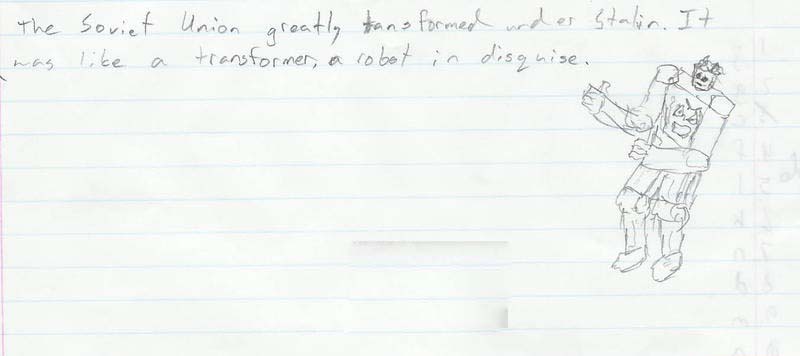 The Soviet Union greatly transformed under Stalin. It
was like a transformer, a robot in disguise.